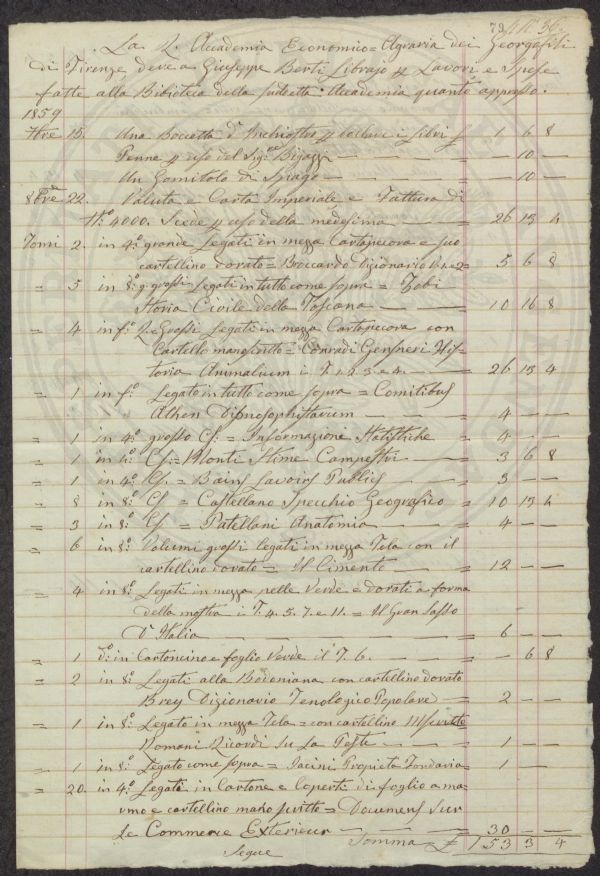 79 N° 36
La R. Accademia Economico=Agraria dei Georgofili
di Firenze, deve a Giuseppe Berti Librajo p Lavori e Spese
fatte alla Biblioteca della sudetta Accademia quanto appresso.
1859
15. Una Boccetta d'Inchiostro p i libri £ 1 6 8
Penne p uso del Sig.re Bigazzi — — 10 —
Un Gomitolo di Spago — — — 10 —
8bre 22. Valuta e Carta Imperiale e Fattura di
N.° 4000. Scede p uso della medesima — = 26 13 4
Tomi 2. in 4.° grande Legati in mezza Cartapecora e suo
cartellino dorato = Broccardo Dizionario V. 1. e 2 = 5 6 8
= 5 in 8.° grossi Legati in tutto come sopra = Zobi
Storia Civile della Toscana — — = 10 16 8
= 4 in f.° e Grossi Legati in mezza Cartapecora con
Cartello manoscritto = Conradi Gensneri His-
toria Animalium i T. 1. 2. 3. e 4. — = 26 13 4
= 1 in f.° Legato in tutto come sopra = Comitibus
Athen Dipnosophistarum — — = 4 — —
= 1 in 4.° grosso Cs. = Informazioni Statistiche = 4 — —
= 1 in 4.° Cs. = Monti Stime Campestri — = 3 6 8
= 1 in 4.° Cs. = Bains Lavoirs Publics — = 3 — —
= 8 in 8.° Cs. = Castellano Specchio Geografico = 10 13 4
= 3 in 8.° Cs. = Patellani Anatomia — = 4 — —
= 6 in 8.° Volumi grossi legati in mezza Tela con il
cartellino dorato = Il Cimento — = 12 — —
= 4 in 8.° Legati in mezza pelle Verde e dorati a forma
della mostra i T. 4. 5. 7. e 11. = Il Gran Sasso
d'Italia — — — = 6 — —
= 1 d.° in Cartoncino e foglio Verde il T. 6. — = — 6 8
= 2 in 8.° Legati alla Bodoniana con cartellino dorato
Brey Dizionario Tenologico Popolare = 2 — —
= 1 in 8.° Legato in mezza Tela = con cartellino Mscritto
Romani Ricordi su La Peste — = 1 — —
= 1 in 8.° Legato come sopra = Jacini Propieta Fondiaria = 1 — —
= 20. in 4.° Legati in Cartone e Coperti di foglio a mar-
mo e cartellino mano scritto = Documens sur
Le Commerce Exterieur — — = 30 — —
Segue Somma £ 153 3 4